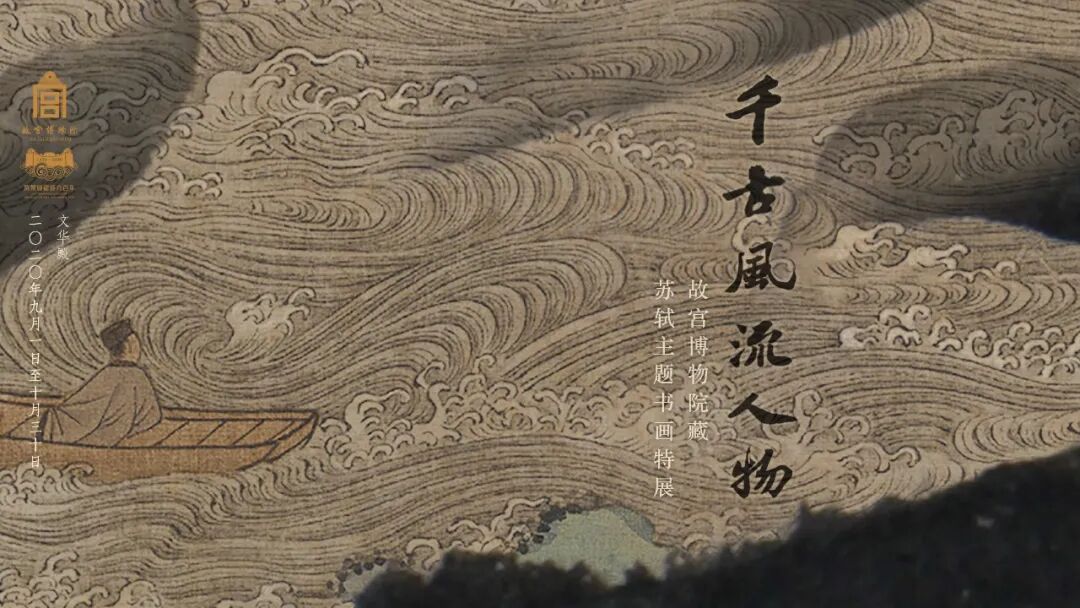 千古風流人物
故宫博物院藏
苏轼主题书画特展
故宫博物院
紫禁城建成六百年
文华殿
二〇二〇年九月一日至十月三十日